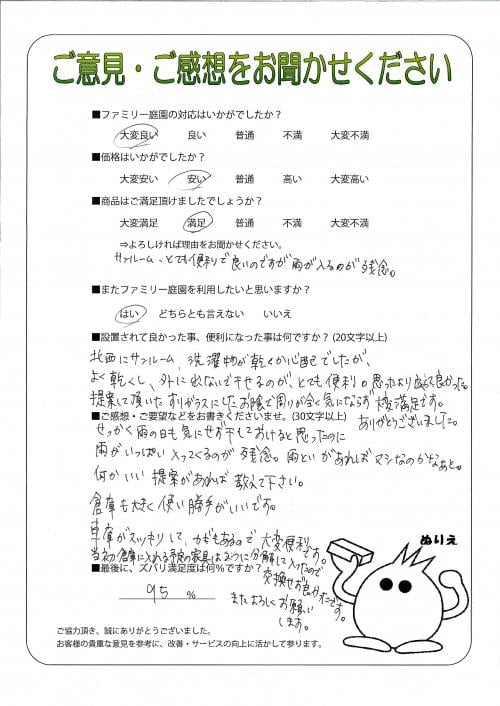 ご意見・ご感想をお聞かせください
■ファミリー庭園の対応はいかがでしたか？
大変良い 良い 普通 不満 大変不満
■価格はいかがでしたか？
大変安い 安い 普通 高い 大変高い
■商品はご満足頂けましたでしょうか？
大変満足 満足 普通 不満 大変不満
⇒よろしければ理由をお聞かせください。
サンルーム、とても便利で良いのですが雨が入るのが残念。
■またファミリー庭園を利用したいと思いますか？
はい どちらとも言えない いいえ
■設置されて良かった事、便利になった事は何ですか？(20文字以上)
北西にサンルーム、洗濯物が乾くか心配でしたが、
よく乾くし、外に出ないで干せるのが、とても便利。思ったより
提案して頂いたすりガラスにしたお陰で周りが全く気にならず大変満足です。
ありがとうございました。
■ご感想・ご要望などをお書きくださいませ。(30文字以上)
せっかく雨の日も気にせず干しておけると思ったのに
雨がいっぱい入ってくるのが残念。雨といがあればマシなのかなぁと。
何かいい提案があれば教えて下さい。
倉庫も大きく使い勝手がいいです。
車庫がスッキリして、カギもあるので大変便利です。
当初倉庫に入れる予定の家具は
分解して入ったので
交換せず良かったです。
またよろしくお願い
します。
■最後に、ズバリ満足度は何%ですか？
95 %
ぬりえ
ご協力頂き、誠にありがとうございました。
お客様の貴重な意見を参考に、改善・サービスの向上に活かして参ります。